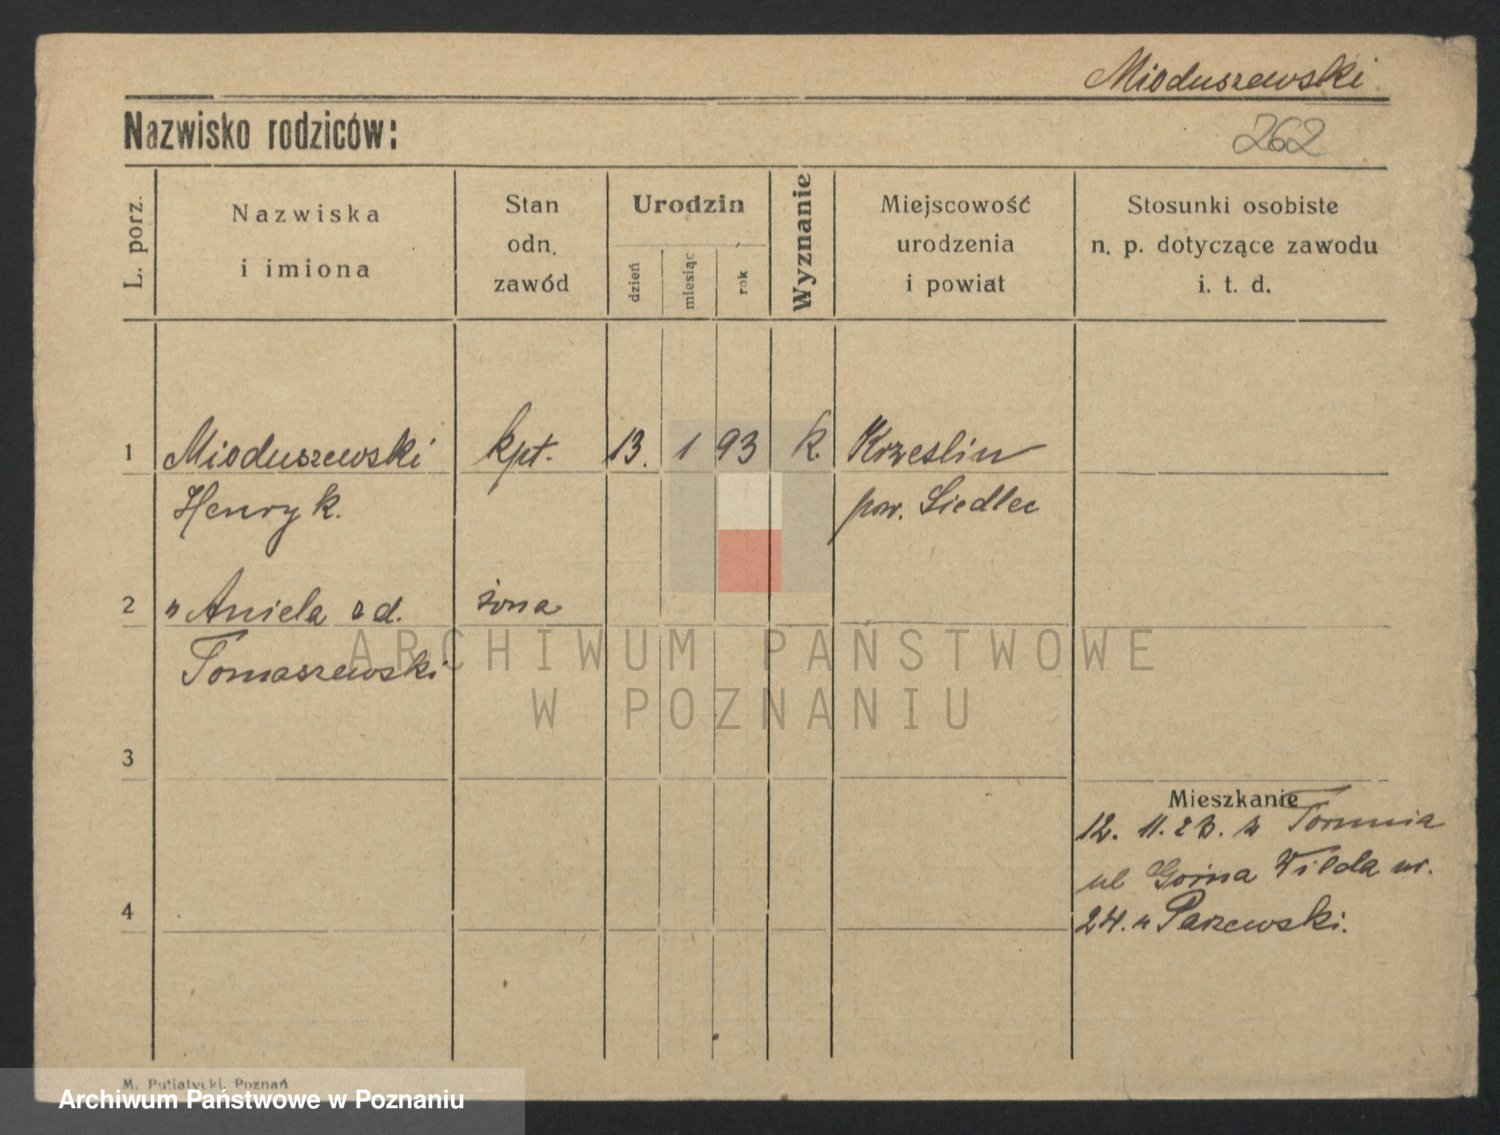 Mioduszewski
Nazwisko rodziców:
262
L. porz.
Nazwiska
i imiona
Stan
odn.
zawód
Urodzin
dzień
miesiąc
rok
Wyznanie
Miejscowość
urodzenia
i powiat
Stosunki osobiste
n. p. dotyczące zawodu
i. t. d.
1 Mioduszewski kpt. 13. 1 93 k. Krzeslin
Henryk. pow. Siedlec
2 " Aniela zd. żona
Tomaszewski
ARCHIWUM PAŃSTWOWE
W POZNANIU
3
Mieszkanie
12. 11. 23. z Torunia
ul Gorna Wilda nr.
4
24. u Parzewski.
M. Putiatycki, Poznań
Archiwum Państwowe w Poznaniu